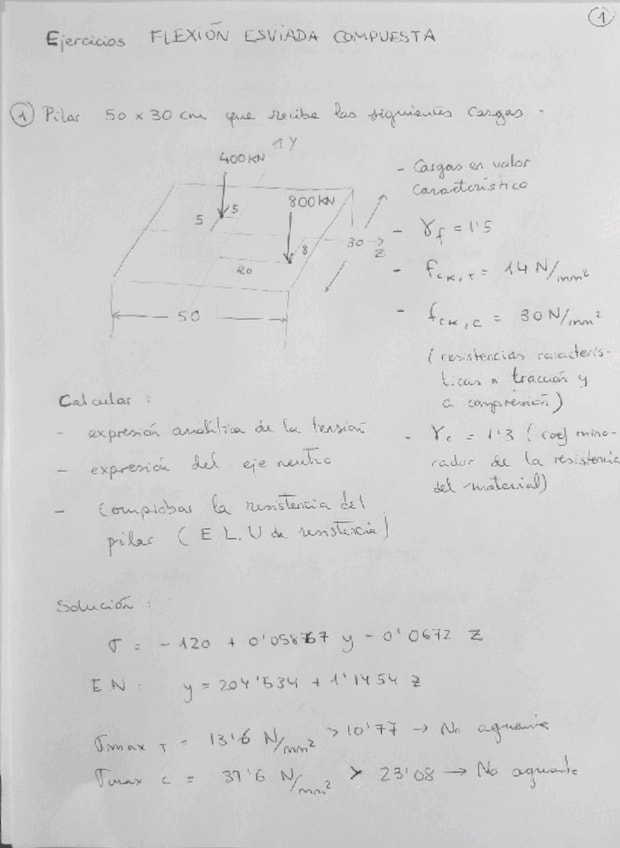 1
Ejercicios FLEXIÓN ESVIADA COMPUESTA
1 Pilar 50 x 30 cm que recibe las siguientes cargas.
Y
400 KN
5
5
800 KN
8
20
30
Z
50
- Cargas en valor
característico
- γf = 1'5
- fck,T = 14 N/mm²
- fck,c = 30 N/mm²
(resistencias caracterís-
ticas a tracción y
a compresión)
- γc = 1'3 (coef mino-
rador de la resistencia
del material)
Calcular :
- expresión analítica de la tensión
- expresión del eje neutro
- Comprobar la resistencia del
pilar (E L.U de resistencia)
Solución :
σ = - 120 + 0'058767 y - 0'0672 z
E.N: y = 204'534 + 1'1454 z
σmax T = 13'6 N/mm² > 10'77 → No aguanta
σmax c = 37'6 N/mm² > 23'08 → No aguanta